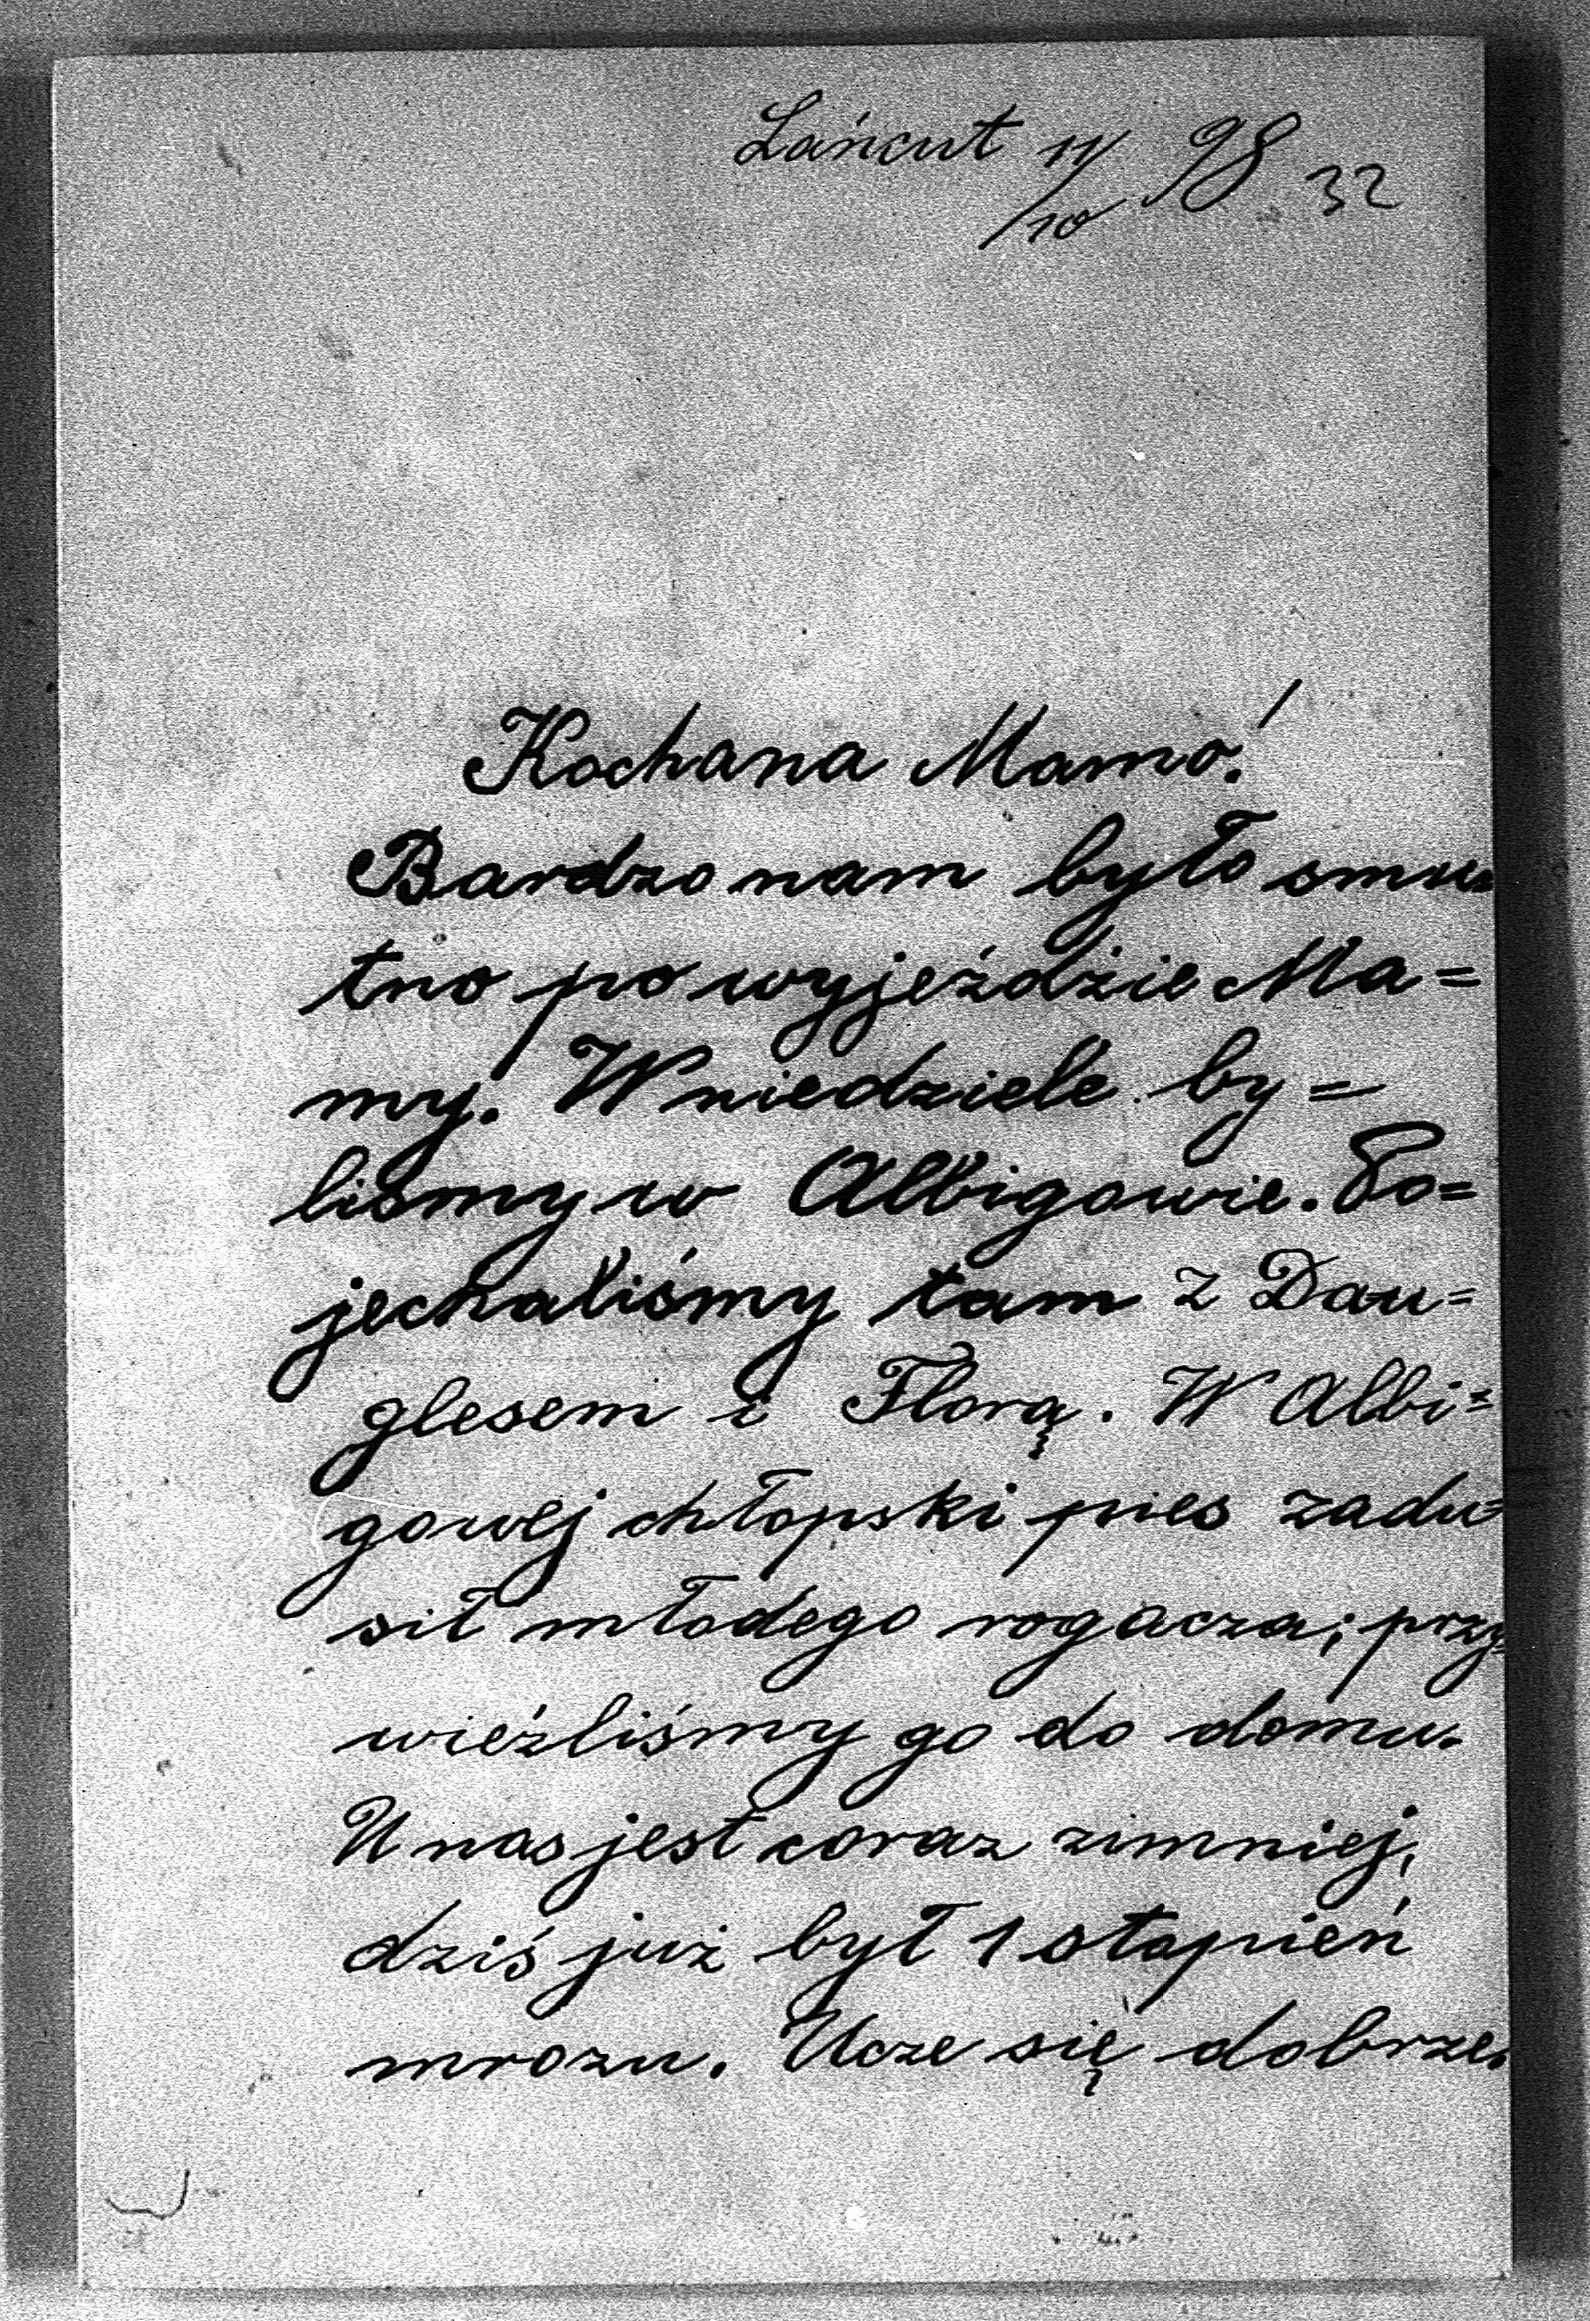 Łańcut 11/10 98
32
Kochana Mamo!
Bardzo nam było smu=
tno po wyjeździe Ma=
my. W niedziele by=
liśmy w Albigowie. Po=
jechaliśmy tam z Dau=
glesem i Florą. W Albi=
gowej chłopski pies zadu=
sił młodego rogacza; przy=
wieźliśmy go do domu.
U nas jest coraz zimniej,
dziś już był 1 stopień
mrozu. Ucze się dobrze.